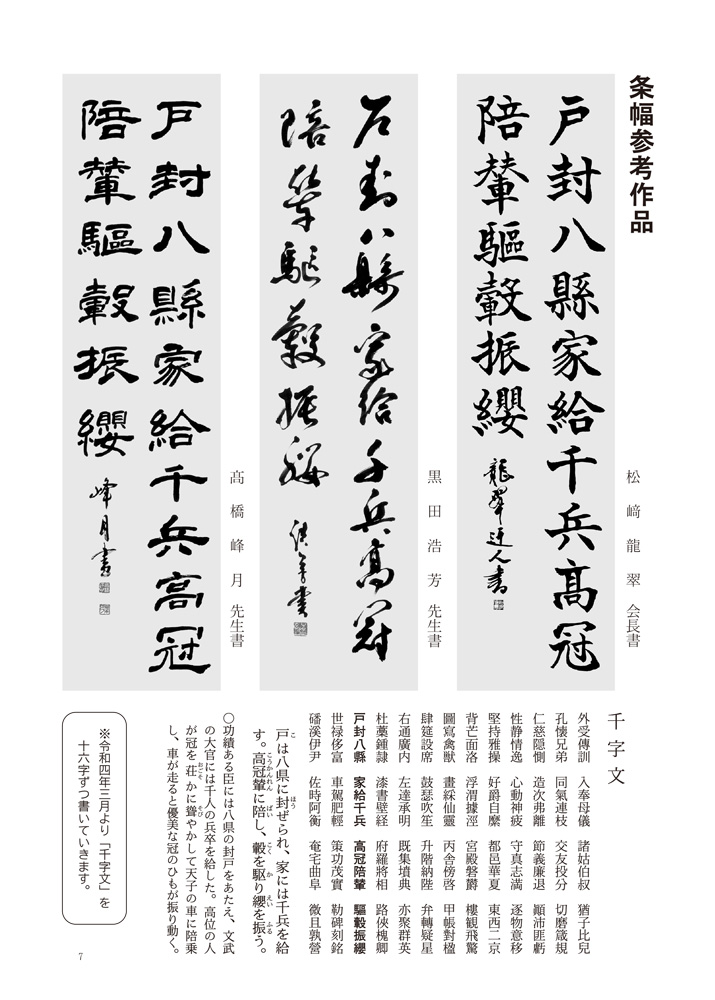 条幅参考作品
戸封八縣家給千兵高冠
陪輦驅轂振纓
龍翠逆人書
松﨑龍翠 会長書
戸封八縣家給千兵高冠
陪輦驅轂振纓
黒田浩芳 先生書
戸封八縣家給千兵高冠
陪輦驅轂振纓
峰月書
髙橋峰月 先生書
千字文
外受傅訓 入奉母儀 諸姑伯叔 猶子比兒
孔懐兄弟 同氣連枝 交友投分 切磨箴規
仁慈隠惻 造次弗離 節義廉退 顚沛匪虧
性静情逸 心動神疲 守真志満 逐物意移
堅持雅操 好爵自縻 都邑華夏 東西二京
背芒面洛 浮渭據涇 宮殿磐欝 樓観飛驚
圖寫禽獣 畫綵仙靈 丙舎傍啓 甲帳對楹
肆筵設席 鼓瑟吹笙 升階納陛 弁轉疑星
右通廣内 左達承明 既集墳典 亦聚群英
杜藁鍾隷 漆書壁経 府羅將相 路侠槐卿
戸封八縣 家給千兵 高冠陪輦 驅轂振纓
世禄侈富 車駕肥輕 策功茂實 勒碑刻銘
磻溪伊尹 佐時阿衡 奄宅曲阜 微且孰營
戸は八県に封ぜられ、家には千兵を給
す。高冠輦に陪し、轂を駆り纓を振う。
〇功績ある臣には八県の封戸をあたえ、文武
の大官には千人の兵卒を給した。高位の人
が冠を荘かに聳やかして天子の車に陪乗
し、車が走ると優美な冠のひもが振り動く。
※令和四年三月より「千字文」を
十六字ずつ書いていきます。
7